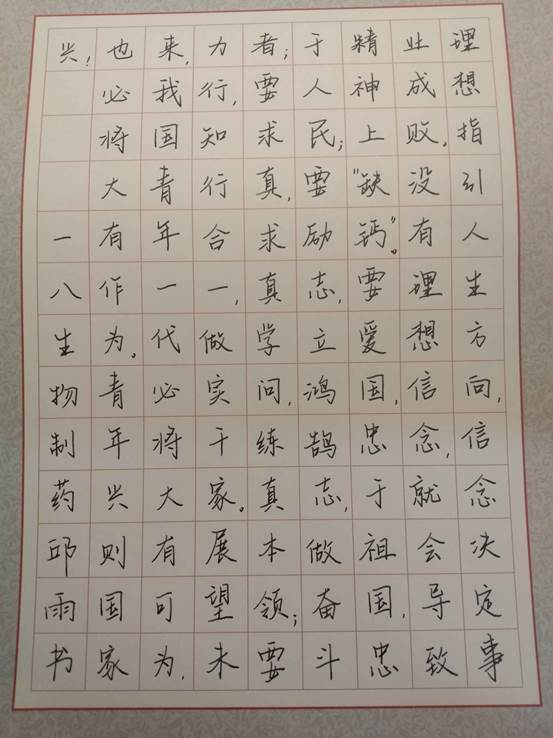 理想指引人生方向,信念决定事
业成败。没有理想信念,就会导致
精神上"缺钙"。要爱国,忠于祖国,忠
于人民;要励志,立鸿鹄志,做奋斗
者;要求真,求真学问,练真本领;要
力行,知行合一,做实干家。展望未
来,我国青年一代必将大有可为,
也必将大有作为。青年兴则国家
兴! 一八生物制药邱雨书